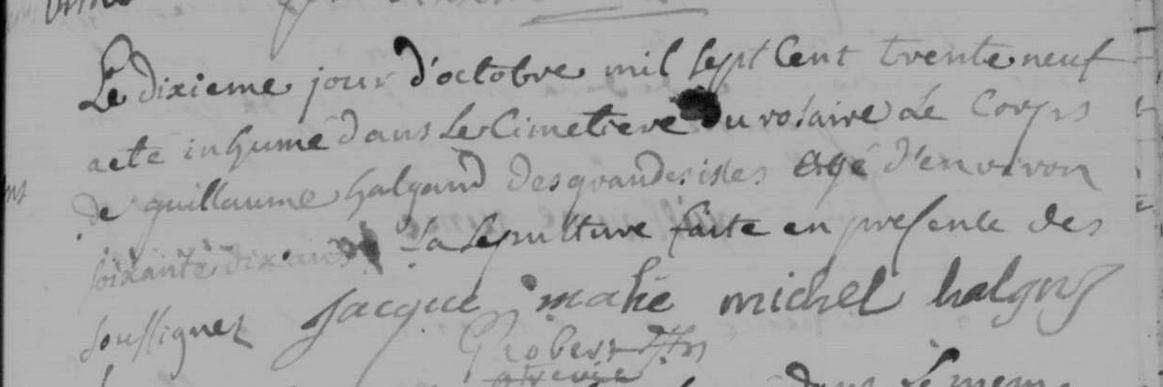 Le dixieme jour d'octobre mil sept Cent trente neuf
a ete inhumé dans Le Cimetiere du rosaire Le Corps
de guillaume halgand des grandes isles agé d'environ
soixante dix ans La sepulture faite en presence des
soussignez jacque mahé michel halgand
G robert
dans Le meme